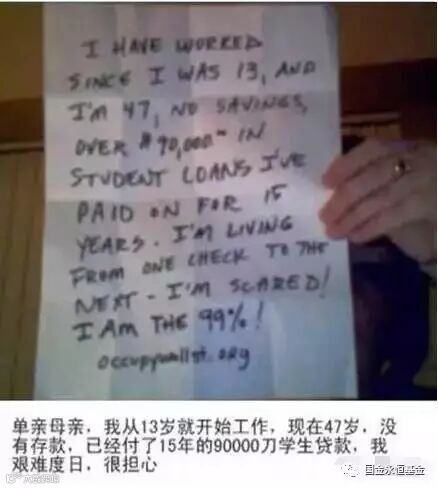 I HAVE WORKED
SINCE I WAS 13, AND
I'M 47, NO SAVINGS,
OVER $90,000⁰⁰ IN
STUDENT LOANS I'VE
PAID ON FOR 15
YEARS. I'M LIVING
FROM ONE CHECK TO THE
NEXT - I'M SCARED!
I AM THE 99%!
occupywallst.org
单亲母亲，我从13岁就开始工作，现在47岁，没
有存款，已经付了15年的90000刀学生贷款，我
艰难度日，很担心
国金永恒基金